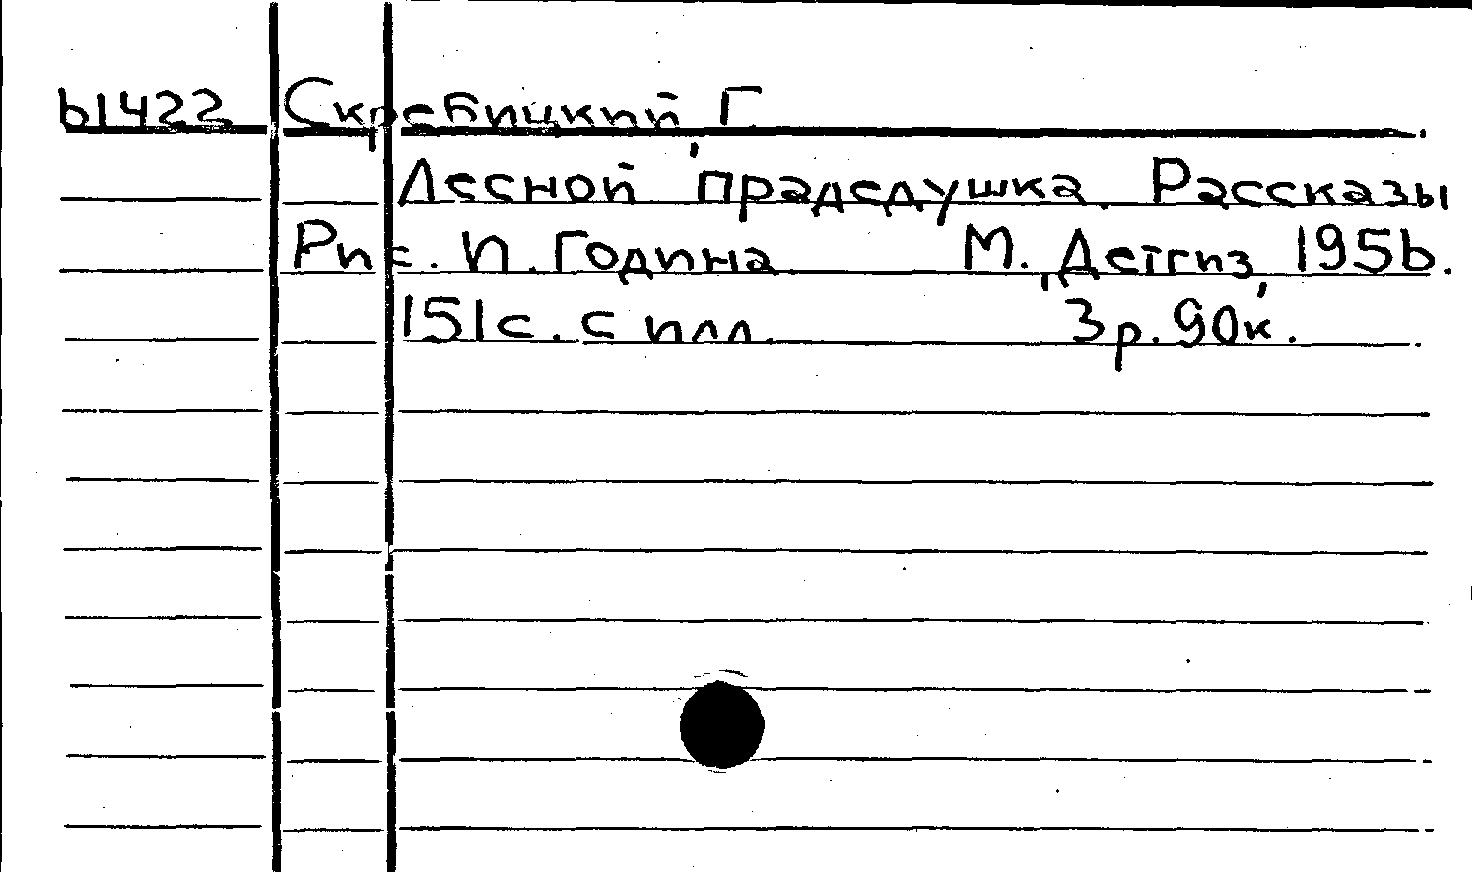 61422 Скребицкий, Г.
Лесной прадедушка. Рассказы
Рис. П. Година М., Детгиз, 1956.
151 с. с илл. 3 р. 90 к.